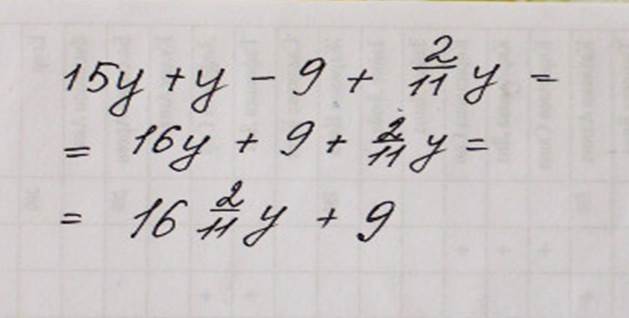 15y + y - 9 + 2/11 y =
= 16y + 9 + 2/11 y =
= 16 2/11 y + 9